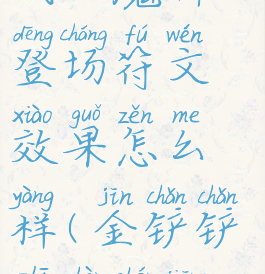 dēng chǎng fú wén
登场符文
xiào guǒ zěn me
效果怎么
yàng jīn chǎn chǎn
样(金铲铲